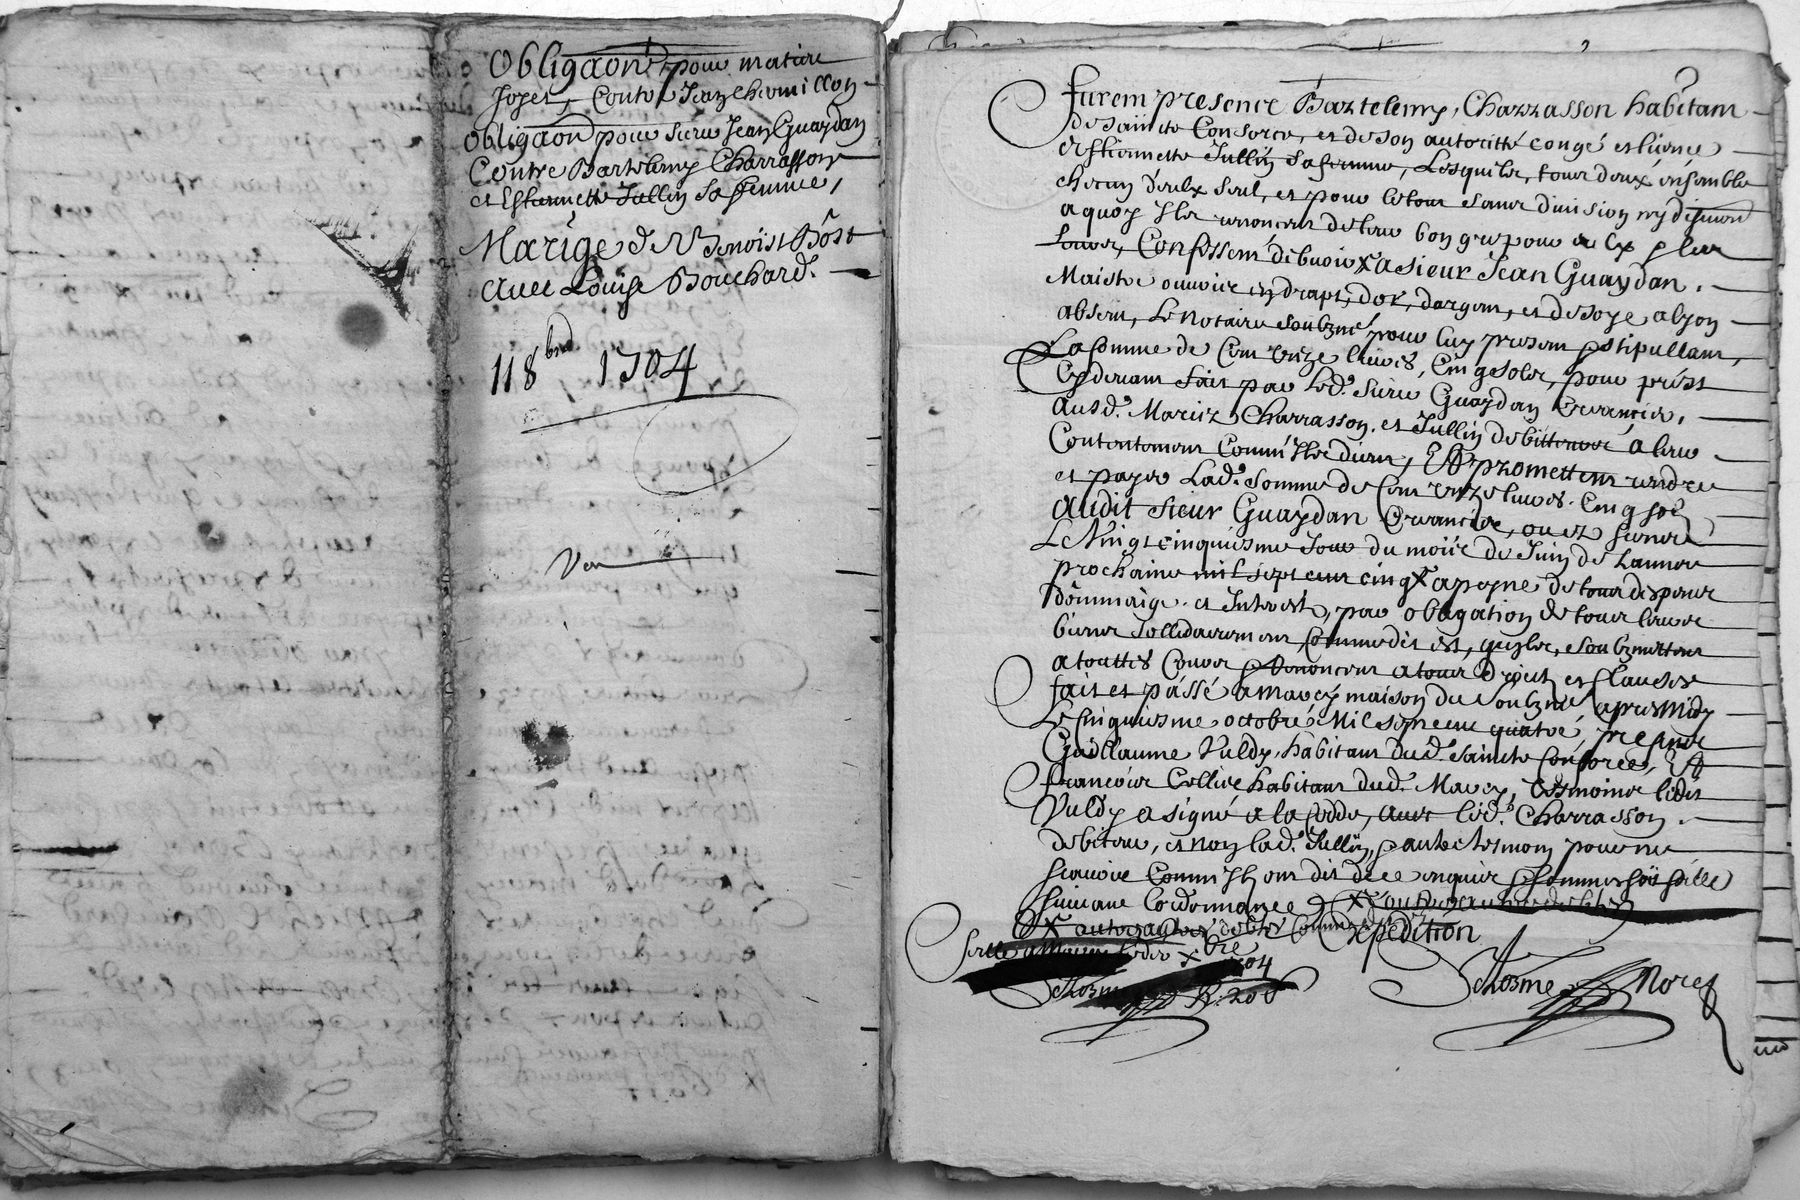 Obligaon pour matieu
Joyet, Contre Jean Chermillon
Obligaon pour sieur Jean Guaydan
Contre Bartelemy Charrasson
et Estiennette Jullin sa femme,
Mariage de Benoist Bost
avec Louise Bouchard.
118 1704
Furem presence Bartelemy, Charrasson habitant
de saincte Consorce, et de son autoritté congé et licence
Estiennette Jullin sa femme, Lesquels, tous deux ensemble
checun d'eulx seul, et pour le tout sans division ny
a quoy Ils renoncent de leur bon gre pour eux et les
leurs, Confessent debvoir a sieur Jean Guaydan.
Maistre ouvrier en draps, d'or, dargent, et de soye a lyon
absent, Le notaire soubzné pour luy present stipullant,
La somme de Cent unze livres, Cinq solz, pour prest
Cydevant fait par led. sieur Guaydan Creancier,
ausd. Mariez Charrasson. et Jullin debitteurs á leur
Contentement Comm'Ils dient, Et promettent rendre
et payer Lad. somme de Cent unze livres. Cinq solz
audit sieur Guaydan Creancier, ou es siens
Le Vingt cinquiesme Jour du mois de Juin de Lannee
prochaine mil sept cent cinq a peyne de tous despens
dommaige. et Interest, par obligation de tous leurs
biens sollidairement Comme dit est, quilz, soubzmettent
a touttes Cours renoncent a tous droict et Clauses
fait et pássé a Marcy maison du soubzné apres midy
Le Cinquiesme octobre Mil sept cent quatre, presents
Guillaume Vuldy, habitant dud. saincte Consorce, Et
francois Collier habitant dud. Marcy, tesmoins ledit
Vuldy a signé a la Cedde, avec led. Charrasson.
debiteur, et non lad. Jullin, autre tesmoin pour ne
scavoir Comm'Ils ont dit de ce enquis sommes
suivant Lordonnance
Expedition
Thosme Nore